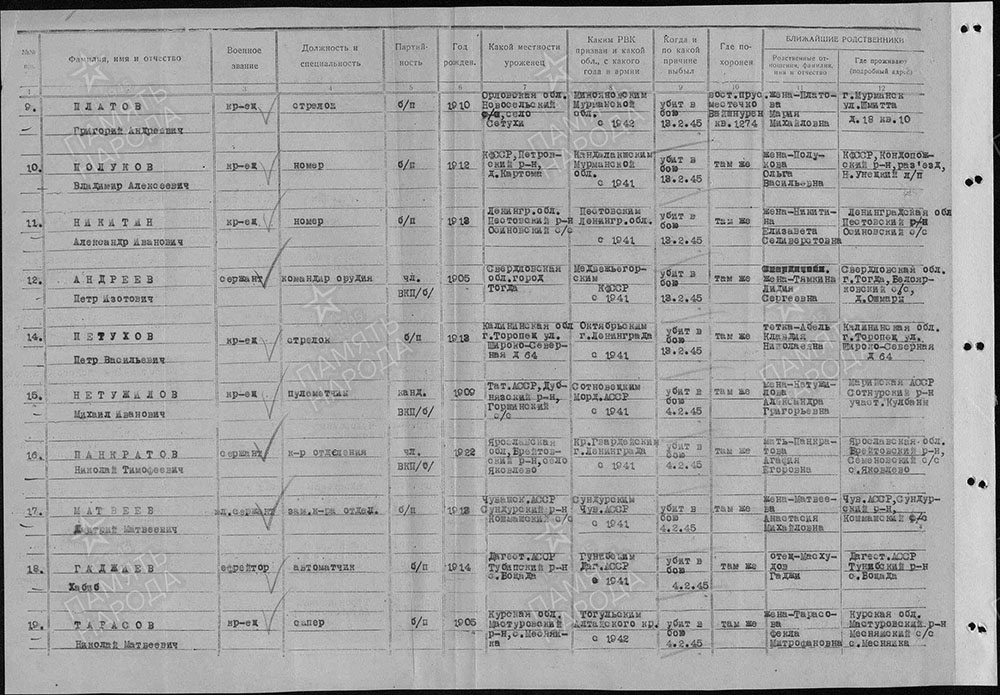 №№ Фамилия, имя и отчество Военное звание Должность и специальность Партий-ность Год рожден. Какой местности уроженец Каким РВК призван и какой обл., с какого года в армии Когда и по какой причине выбыл Где по-хоронен БЛИЖАЙШИЕ РОДСТВЕННИКИ
Родственные от-ношения, фамилия, имя и отчество Где проживают (подробный адрес)
1 2 3 4 5 6 7 8 9 10 11 12
9. ПЛАТОВ кр-ец стрелок б/п 1910 Орловская обл. Минскновским убит в вост.прус. жена-Плато- г.Мурманск
Новосельский Мурманской бою местечко ва ул.Шмитта
с/с, село обл. 13.2.45 Мария д.18 кв.10
Григорий Андреевич Сетухи с 1942 кв.1274 Михайловна
10. ПОЛУКОВ кр-ец номер б/п 1912 КФССР,Петров- Кандалакшским убит в там же жена-Полу- КФССР,Кондопож-
ский р-н, Мурманской бою кова ский р-н,раз'езд,
д.Картома обл. 13.2.45 Ольга Н.Унецкий л/п
Владимир Алексеевич с 1941 Васильевна
11. НИКИТИН кр-ец номер б/п 1913 Ленингр.обл. Пестовским убит в там же жена-Никити- Ленинградская обл
Пестовский р-н Ленингр.обл. бою на Пестовский р-н
Осиновский с/с 13.2.45 Елизавета Осиновский с/с
Александр Иванович с 1941 Селиверотовна
12. АНДРЕЕВ сержант командир орудия чл. 1905 Свердловская Медвежьегор- убит в там же Свердловская обл.
обл.город ским бою жена-Тямкина г.Тогда,Белояр-
Тогда КФССР Лидия ковский с/с,
Петр Изотович ВКП/б/ с 1941 13.2.45 Сергеевна д.Ошмары
14. ПЕТУХОВ кр-ец стрелок б/п 1913 Калининская обл Октябрьским убит в там же тетка-Абель Калининская обл.
г.Торопец ул. г.Ленинграда бою Клавдия г.Торопец ул.
Широко-Север- 13.2.45 Николаевна Широко-Северная
Петр Васильевич ная Д 64 с 1941 Д 64
15. НЕТУЖИЛОВ кр-ец пулеметчик канд. 1909 Тат.АССР,Дуб- Сотновецким убит в там же жена-Нетужи- Марийская АССР
нявский р-н, Морд.АССР бою лова Сотнурский р-н
Горшинский 4.2.45 Александра участ.Кулбаны
Михаил Иванович ВКП/б/ с/с с 1941 Григорьевна
16. ПАНКРАТОВ сержант к-р отделения чл. 1922 Ярославская Кр.Гвардейским убит в там же мать-Панкра- Ярославская обл.
обл,Брейтов- г.Ленинграда бою това Брейтовский р-н,
ский р-н,село Агафия Семеновский с/с
Николай Тимофеевич ВКП/б/ Яковлево с 1941 4.2.45 Егоровна с.Яковлево
17. МАТВЕЕВ мл.сержант зам.к-ра отдел. б/п 1912 Чувашск.АССР Сундурским убит в там же жена-Матвее- Чув.АССР,Сундур-
Сундурский р-н Чув.АССР бою ва ский р-н,
Кошмашский с/с с 1941 Анастасия Кошмашский с/с
Дмитрий Матвеевич 4.2.45 Михайловна
18. ГАДЖАЕВ ефрейтор автоматчик б/п 1914 Дагест.АССР Гунибским убит в там же отец-Масху- Дагест.АССР
Тубипский р-н Даг.АССР бою дов Тунибский р-н
Хабаб с.Воцада с 1941 4.2.45 Гаджи с.Воцада
19. ТАРАСОВ кр-ец сапер б/п 1905 Курская обл. Тогульским убит в там же жена-Тарасо- Курская обл.
Мастуровский Алтайского кр. бою ва Мастуровский р-н
р-н,с.Меснян- 4.2.45 Фекла Месняжский с/с
Николай Матвеевич ка с 1942 Митрофановна с.Меснянка
ПАМЯТЬ НАРОДА